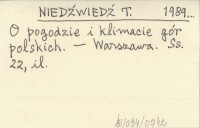 NIEDŹWIEDŹ T. 1989...
O pogodzie i klimacie gór
polskich. — Warszawa. Ss.
22, il.